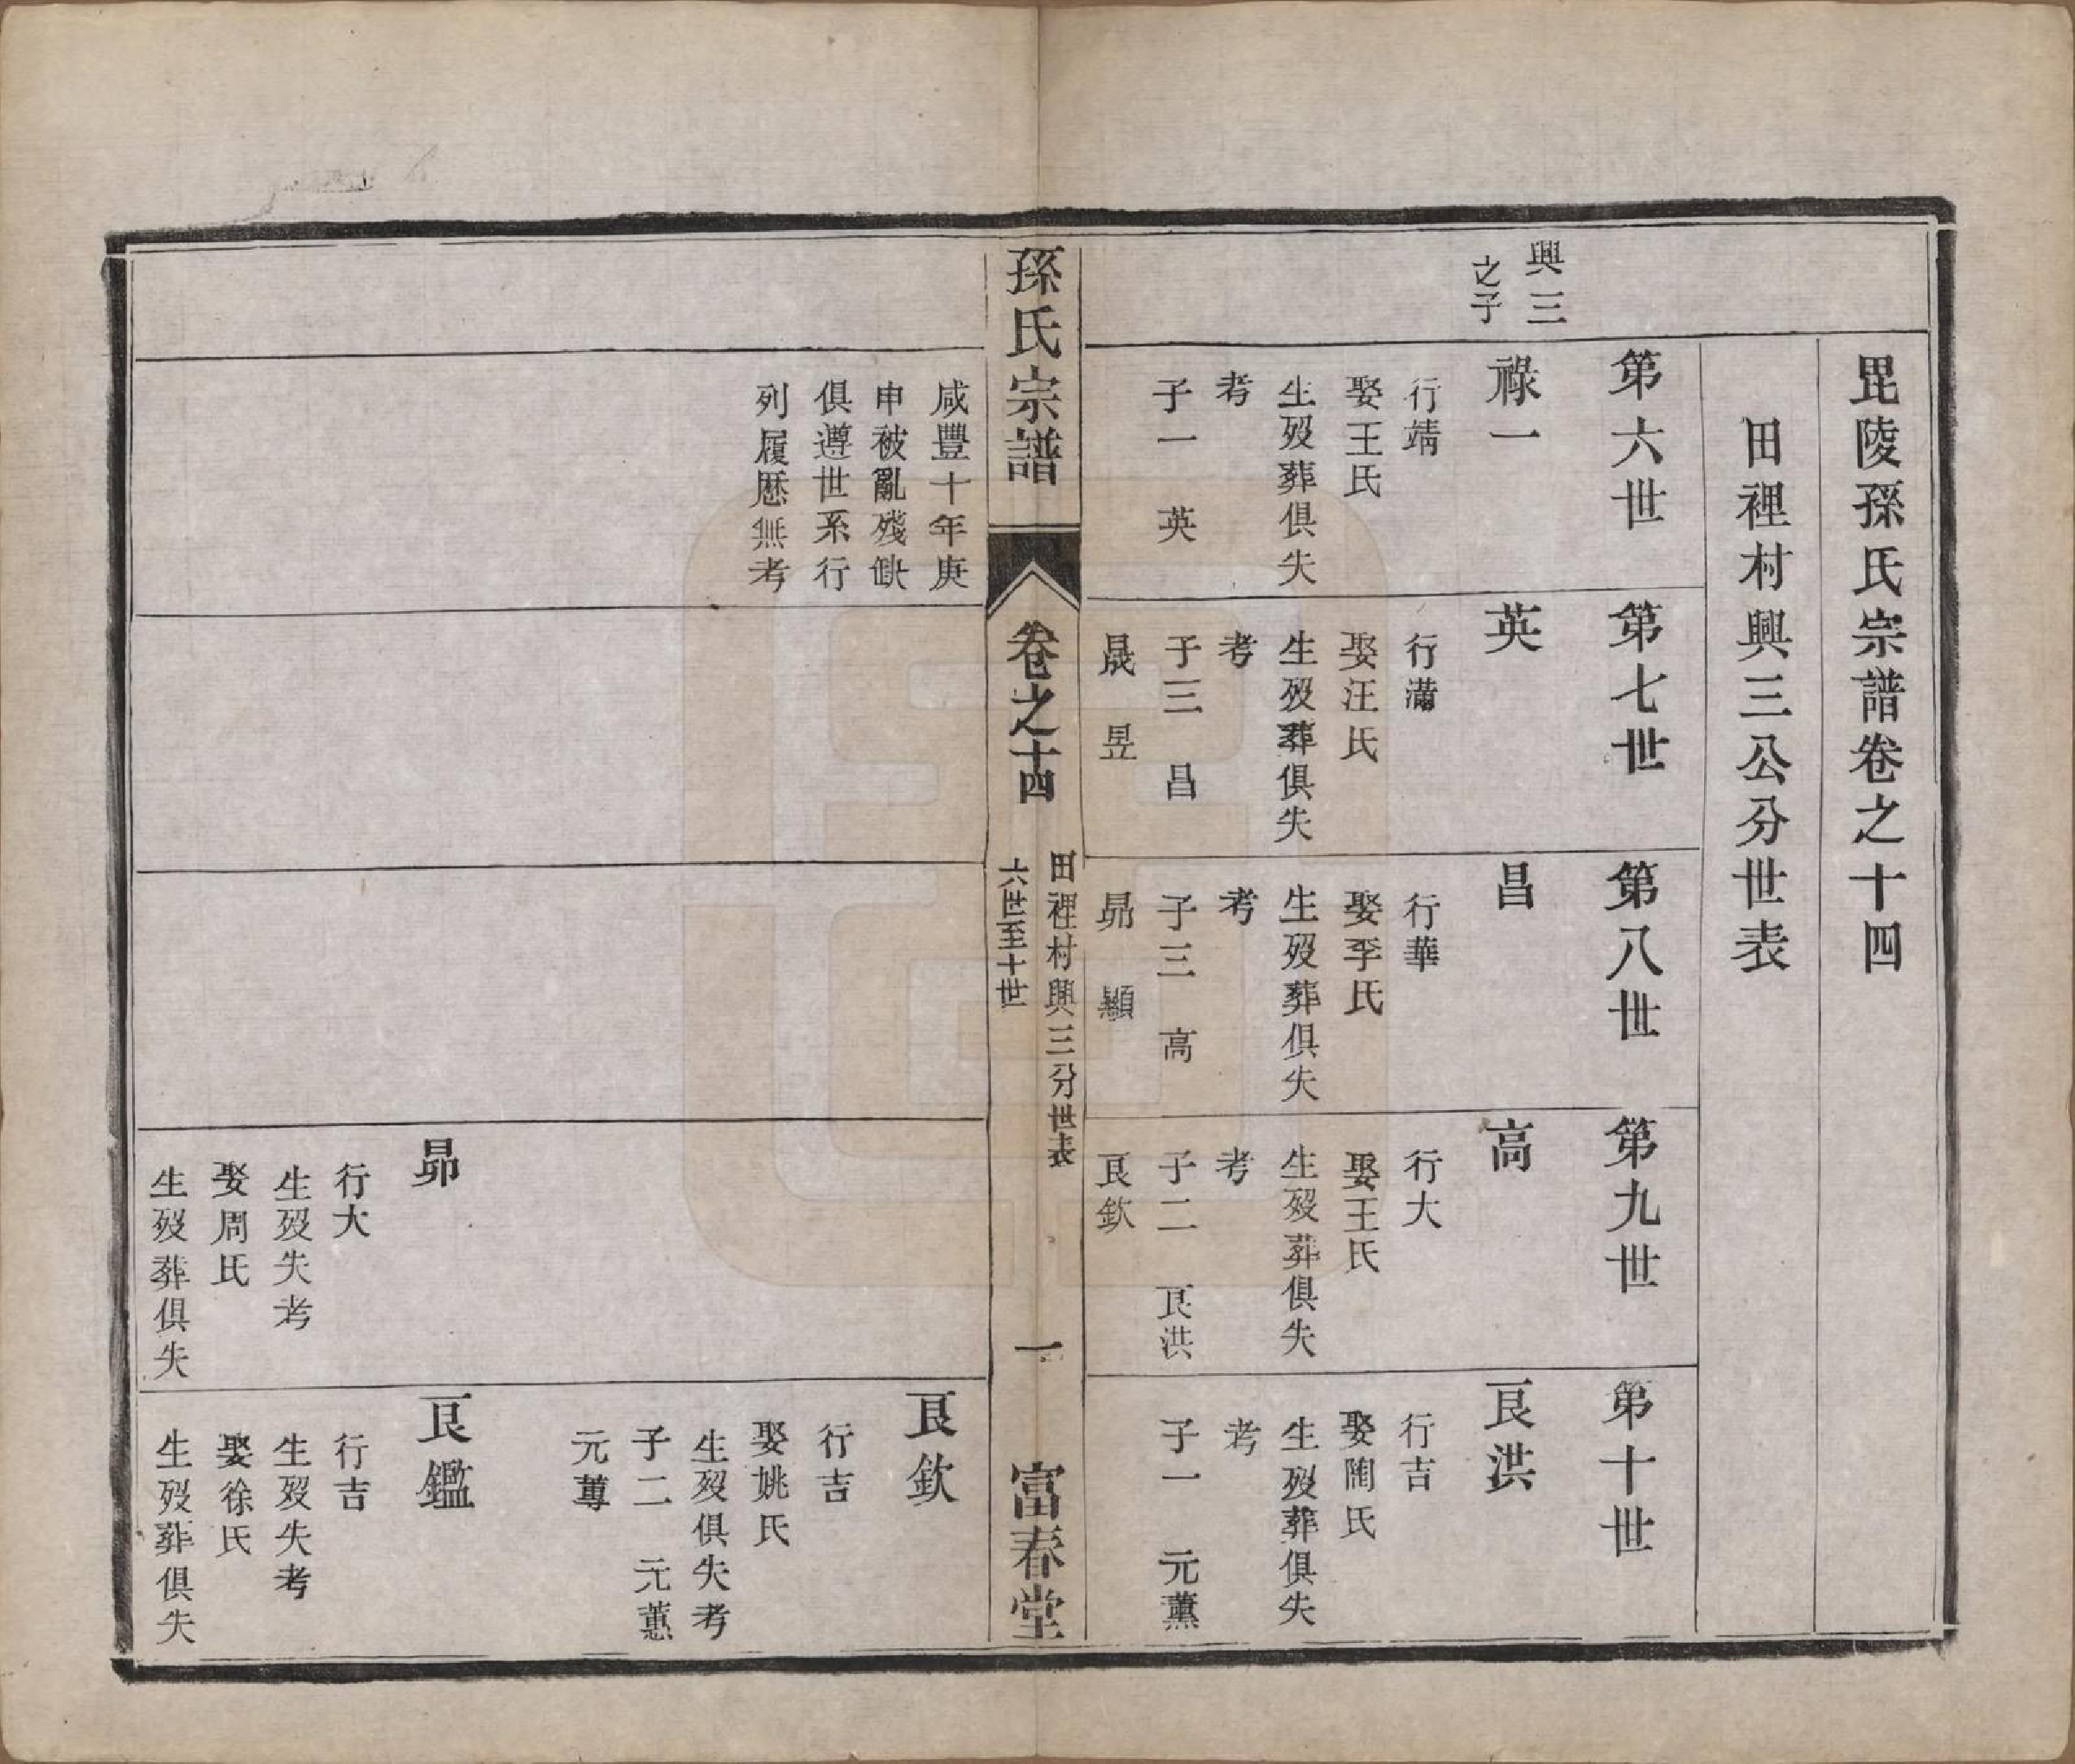 毘陵孫氏宗譜卷之十四
田裡村興三公分世表
興三
之子
第六世
祿一
行靖
娶王氏
生歿葬俱失
考
子一 英
第七世
英
行潚
娶汪氏
生歿葬俱失
考
子三 昌
晟 昱
第八世
昌
行華
娶季氏
生歿葬俱失
考
子三 高
昴 顯
第九世
高
行大
娶王氏
生歿葬俱失
考
子二 艮洪
艮欽
第十世
艮洪
行吉
娶陶氏
生歿葬俱失
考
子一 元薰
孫氏宗譜
卷之十四
田裡村興三分世表
六世至十世
一
富春堂
咸豐十年庚
申被亂殘缺
俱遵世系行
列履歷無考
昴
行大
生歿失考
娶周氏
生歿葬俱失
艮欽
行吉
娶姚氏
生歿俱失考
子二 元蕙
元蓴
艮鑑
行吉
生歿失考
娶徐氏
生歿葬俱失